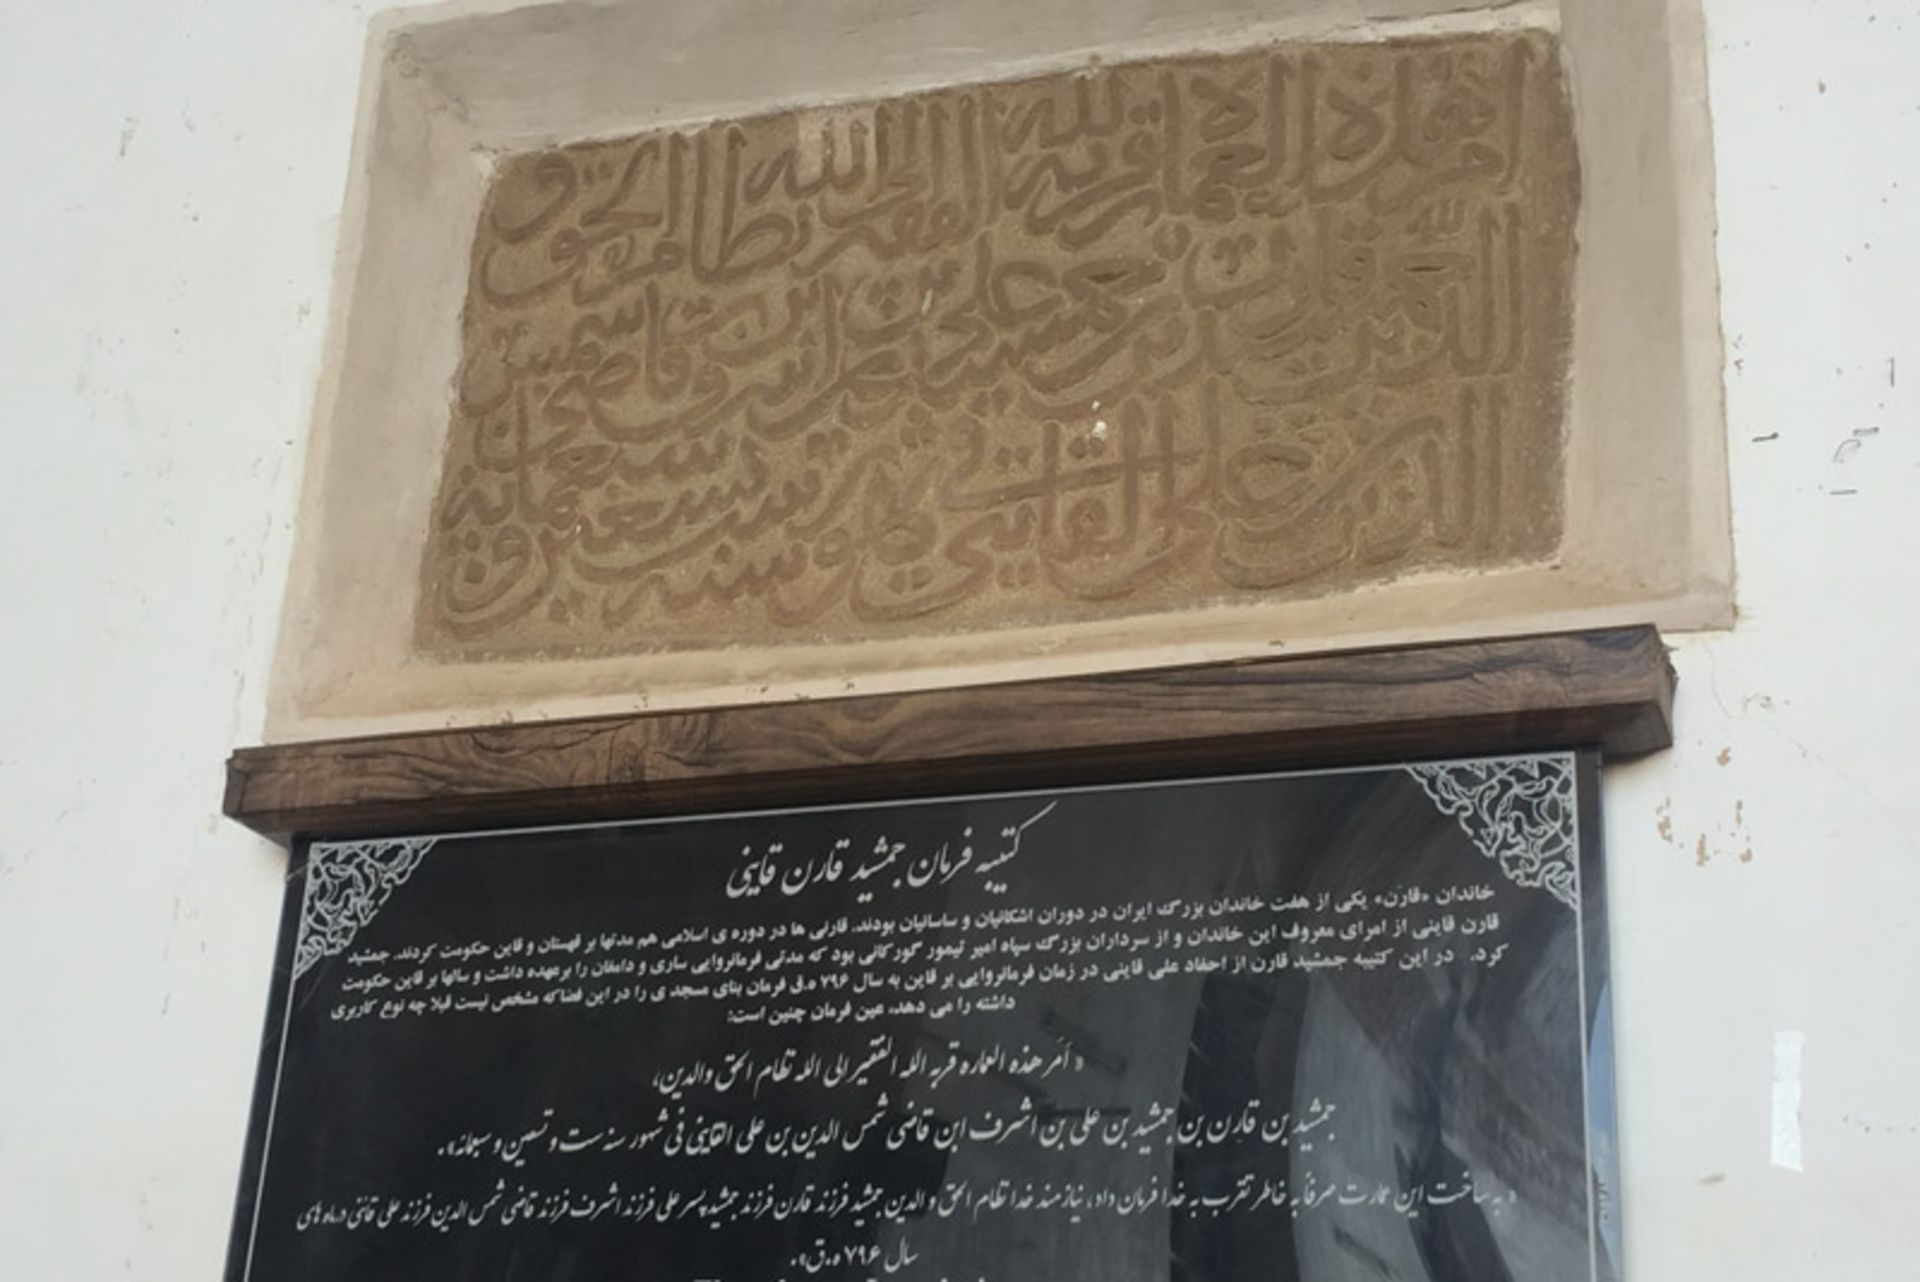 امر هذه العمارة قربه لله الفقیر الی الله نظام الحق و
الدین جمشید بن قارن بن جمشید بن علی بن اشرف ابن قاضی شمس
الدین بن علی القاینی فی شهور سنه ست و تسعین و سبعمائه
کتیبه فرمان جمشید قارن قاینی
خاندان «قارَن» یکی از هفت خاندان بزرگ ایران در دوران اشکانیان و ساسانیان بودند. قارنی ها در دوره ی اسلامی هم مدتها بر قهستان و قاین حکومت کردند. جمشید
قارن قاینی از امرای معروف این خاندان و از سرداران بزرگ سپاه امیر تیمور گورکانی بود که مدتی فرمانروایی ساری و دامغان را برعهده داشت و سالها بر قاین حکومت
کرد. در این کتیبه جمشید قارن از احفاد علی قاینی در زمان فرمانروایی بر قاین به سال ۷۹۶ ه.ق فرمان بنای مسجد ی را در این فضاکه مشخص نیست قبلا چه نوع کاربری
داشته را می دهد، عین فرمان چنین است:
« اَمَر هذه العماره قربه الله الفقیر الی الله نظام الحق والدین،
جمشید بن قارِن بن جمشید بن علی بن اشرف ابن قاضی شمس الدین بن علی القاینی فی شهور سنه ست و تسعین و سبعمائه».
« به ساخت این عمارت صرفاً به خاطر تقرب به خدا فرمان داد، نیازمند خدا نظام الحق و الدین جمشید فرزند قارن فرزند جمشید پسر علی فرزند اشرف فرزند قاضی شمس الدین فرزند علی قائنی در ماه های
سال ۷۹۶ ه.ق».